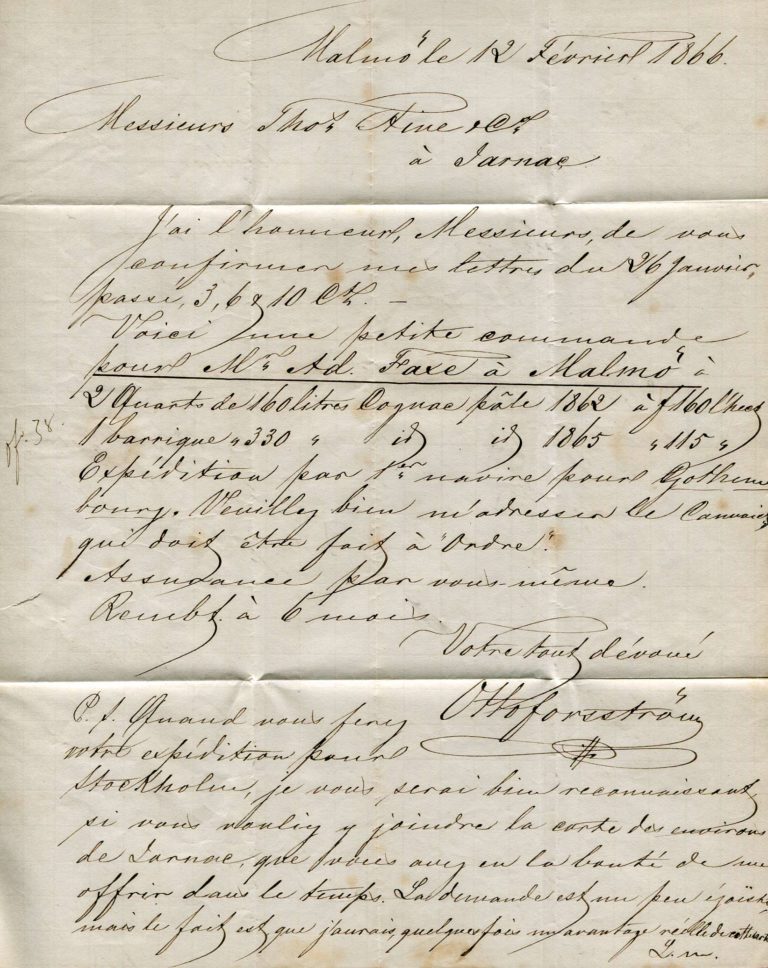 Malmö le 12 Février 1866.
Messieurs Thos. Hine & Co.
à Jarnac
J'ai l'honneur, Messieurs, de vous
confirmer mes lettres du 26 Janvier
passé, 3, 6 & 10 Ct. —
Voici une petite commande
pour Mr. Ad. Faxe à Malmö à
2 Quarts de 160 litres Cognac pâle 1862 à f 160 l'hect
1 barrique " 330 " id id 1865 " 115 "
of. 38.
Expédition par 1er navire pour Gothem
bourg. Veuillez bien m'adresser le Connaiss,
qui doit être fait à "Ordre".
Assurance par vous-même.
Rembt. à 6 mois.
Votre tout dévoué
Otto Forsström
P.S. Quand vous ferez
votre expédition pour
Stockholm, je vous serai bien reconnaissant,
si vous vouliez y joindre la carte des environs
de Jarnac, que vous avez eu la bonté de me
offrir dans le temps. La demande est un peu égoïste,
mais le fait est que j'aurais, quelques fois un avantage réelle de cette carte
L. m.